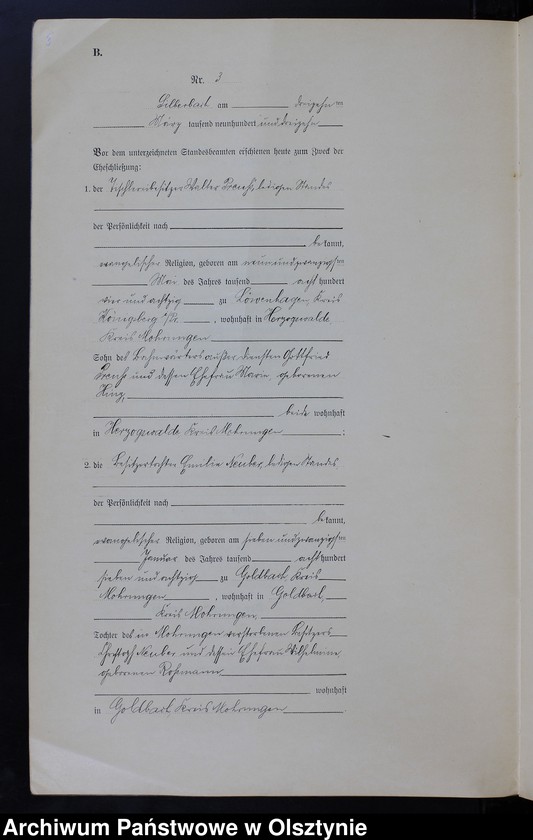 B.
Nr. 3
Silberbach am dreizehnten
März tausend neunhundert und dreizehn
Vor dem unterzeichneten Standesbeamten erschienen heute zum Zweck der
Eheschließung:
1. der Tischlereibesitzer Walter ledigen Standes
der Persönlichkeit nach
bekannt,
evangelischer Religion, geboren am neunundzwanzigsten
Mai des Jahres tausend acht hundert
vier und achtzig zu Löwenhagen, Kreis
Königsberg i/Pr., wohnhaft in Herzogswalde,
Kreis Mohrungen
Sohn des Bahnwärters außer Diensten Gottfried
und dessen Ehefrau Marie, geborenen
beide wohnhaft
in Herzogswalde Kreis Mohrungen ;
2. die Besitzertochter Emilie Neuber, ledigen Standes
der Persönlichkeit nach
bekannt,
evangelischer Religion, geboren am sieben und zwanzigsten
Januar des Jahres tausend acht hundert
sieben und achtzig zu Goldbach, Kreis
Mohrungen, wohnhaft in Goldbach,
Kreis Mohrungen,
Tochter des in Mohrungen verstorbenen Besitzers
Christoph Neuber und dessen Ehefrau Wilhelmine
geborenen
wohnhaft
in Goldbach Kreis Mohrungen
Archiwum Państwowe w Olsztynie